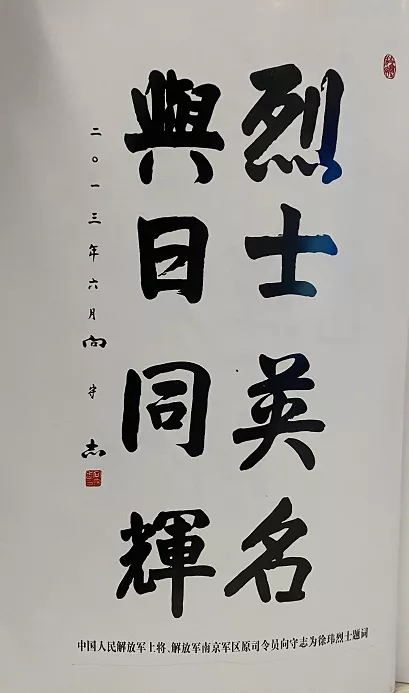 烈士英名
與日同輝
二〇一三年六月向守志
中国人民解放军上将、解放军南京军区原司令员向守志为徐玮烈士题词